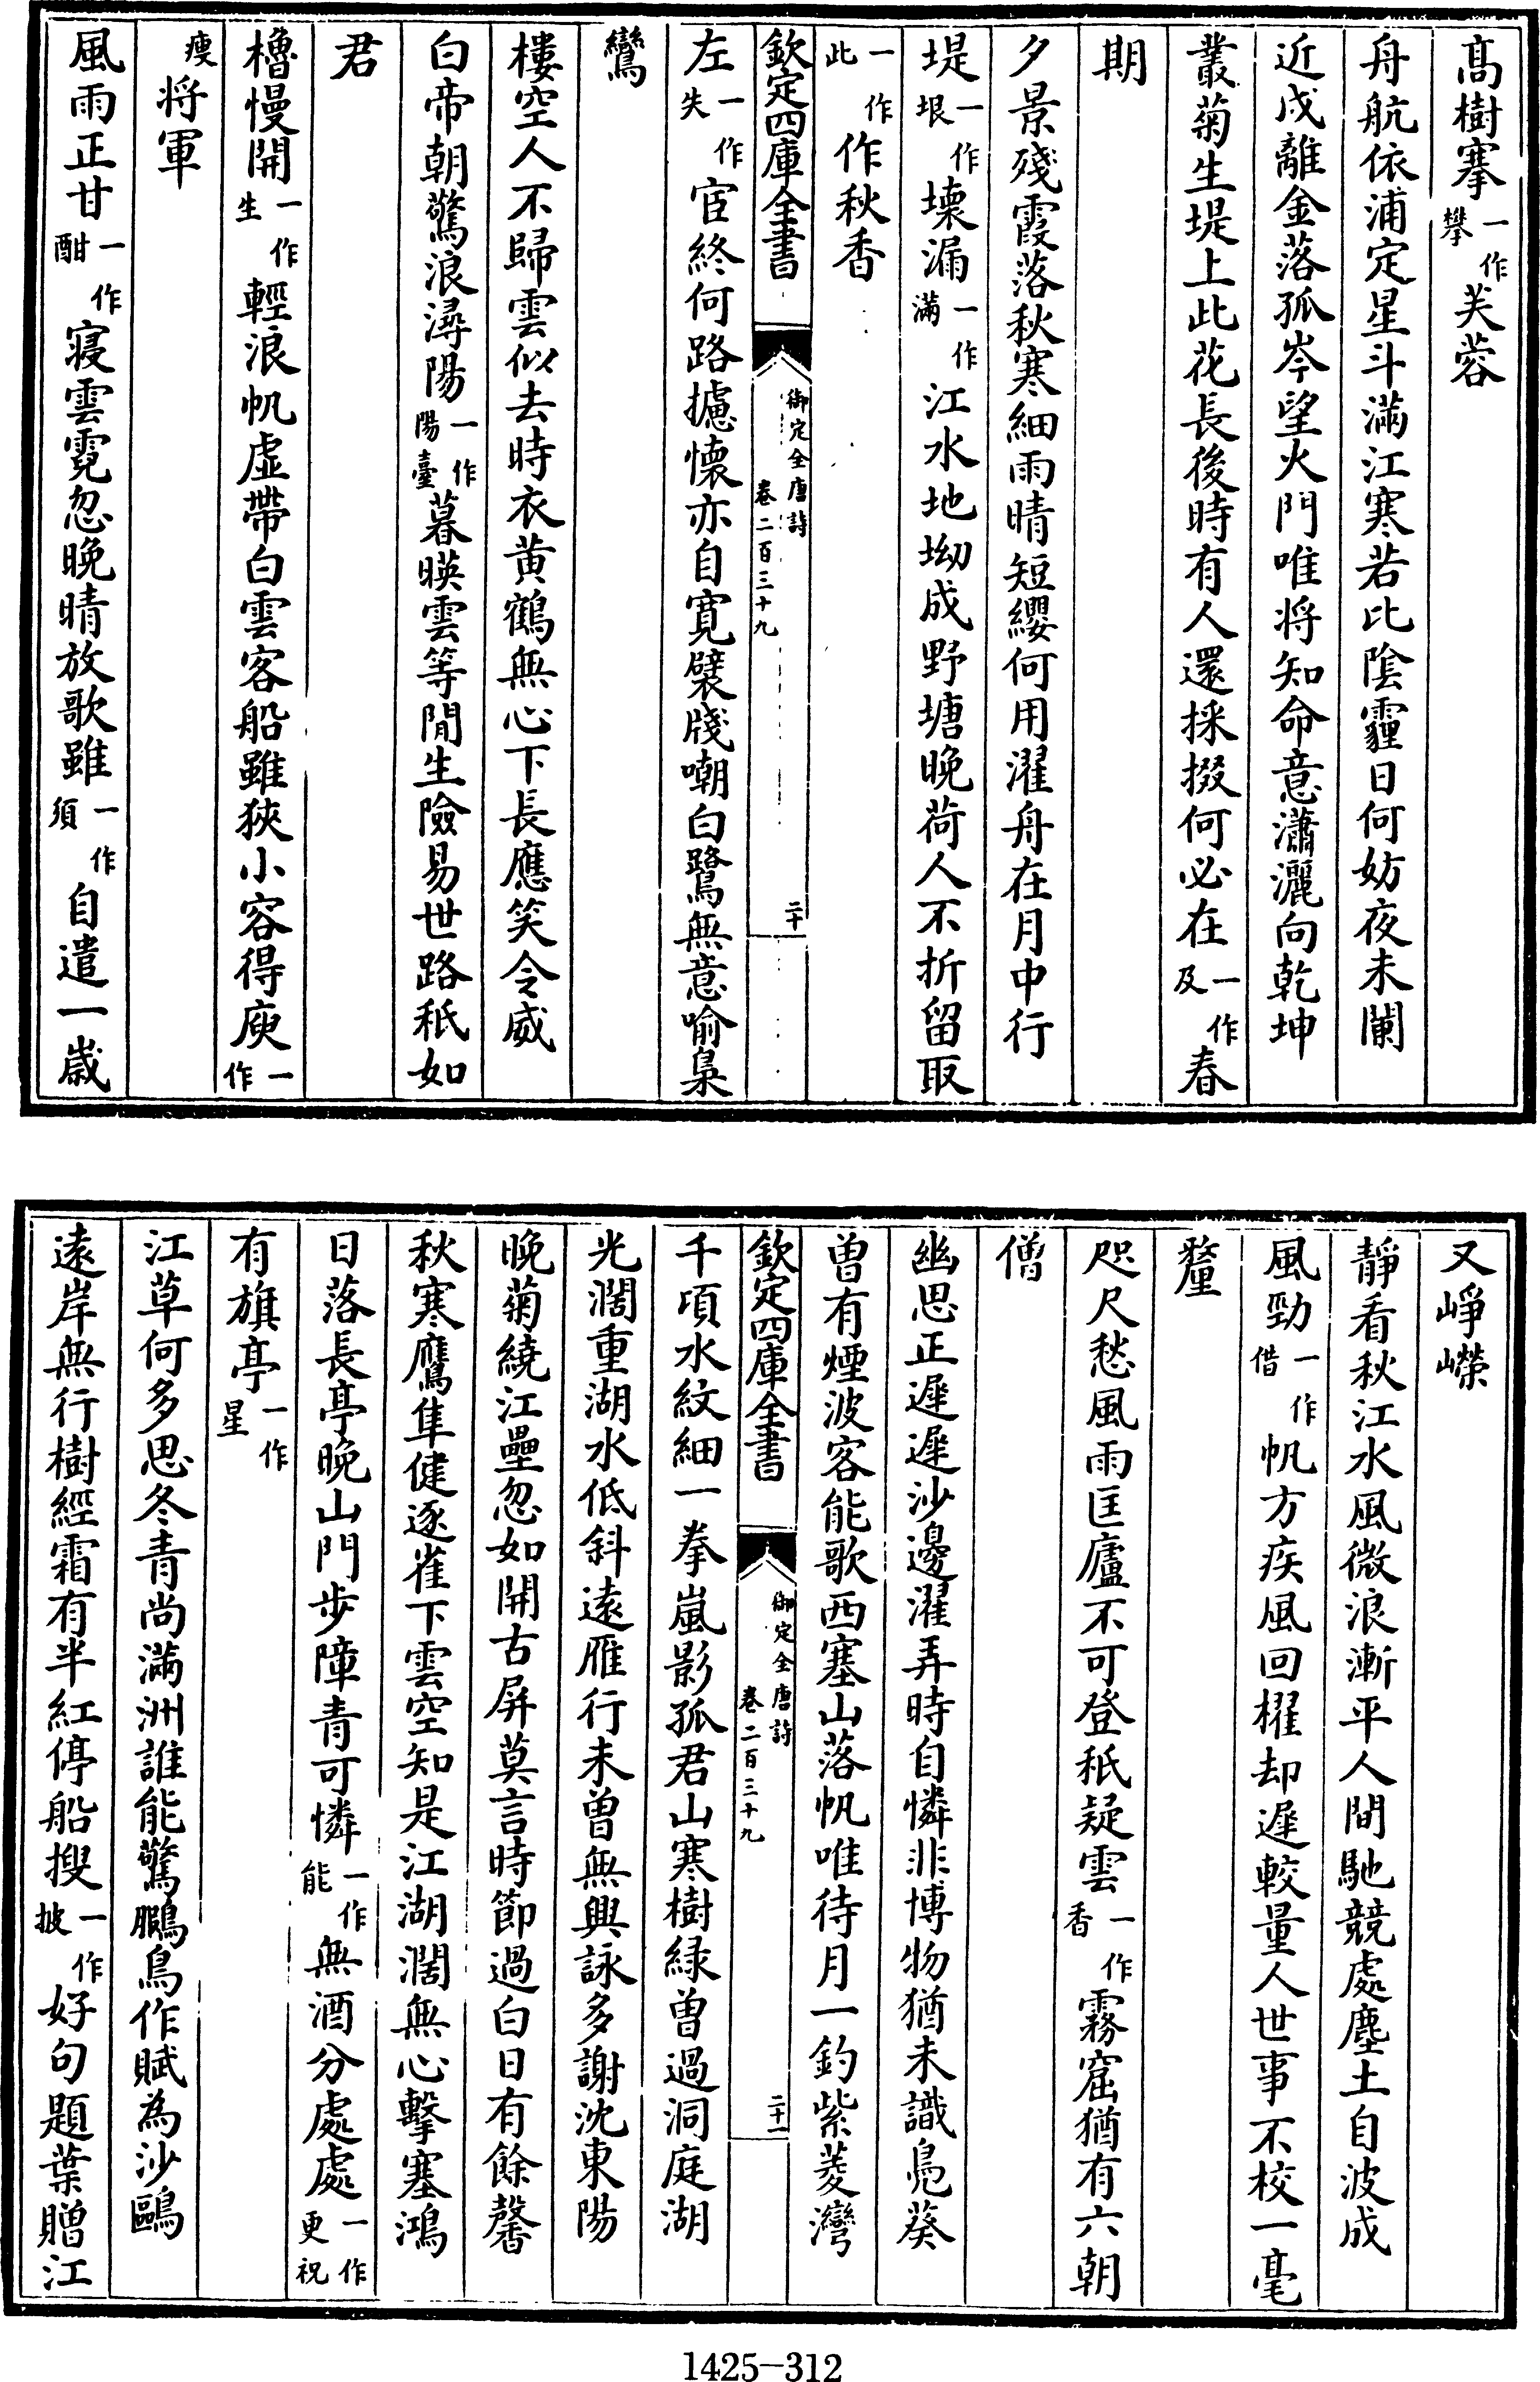 髙樹搴一作攀芙蓉
舟航依浦定星斗滿江寒若比隂霾日何妨夜未闌
近戍離金落孤岑望火門唯将知命意瀟灑向乾坤
叢菊生堤上此花長後時有人還採掇何必在一作及春
期
夕景殘霞落秋寒細雨晴短纓何用濯舟在月中行
堤一作垠壊漏一作滿江水地坳成野塘晚荷人不折留取
一作此作秋香
欽定四庫全書
御定全唐詩
卷二百三十九
二十
左一作失宦終何路攄懐亦自寛襞牋嘲白鷺無意喻梟
鸞
樓空人不歸雲似去時衣黄鶴無心下長應笑令威
白帝朝驚浪潯陽一作陽臺暮暎雲等閒生險易世路秖如
君
櫓慢開一作生輕浪帆虚帶白雲客船雖狹小容得庾一作
痩将軍
風雨正甘一作酣寝雲霓忽晚晴放歌雖一作須自遣一嵗
又崢嶸
靜看秋江水風微浪漸平人間馳競處塵土自波成
風勁一作借帆方疾風回櫂却遲較量人世事不校一毫
釐
咫尺愁風雨匡廬不可登秖疑雲一作香霧窟猶有六朝
僧
幽思正遲遲沙邊濯弄時自憐非博物猶未識鳬葵
曽有煙波客能歌西塞山落帆唯待月一釣紫菱灣
欽定四庫全書
御定全唐詩
卷二百三十九
二十一
千頃水紋細一拳嵐影孤君山寒樹緑曽過洞庭湖
光濶重湖水低斜逺雁行未曽無興詠多謝沈東陽
晚菊繞江壘忽如開古屏莫言時節過白日有餘馨
秋寒鷹隼健逐雀下雲空知是江湖濶無心擊塞鴻
日落長亭晚山門步障青可憐一作能無酒分處處一作更祝
有旗亭一作星
江草何多思冬青尚滿洲誰能驚鵩鳥作賦為沙鷗
逺岸無行樹經霜有半紅停船搜一作披好句題葉贈江
1425-312